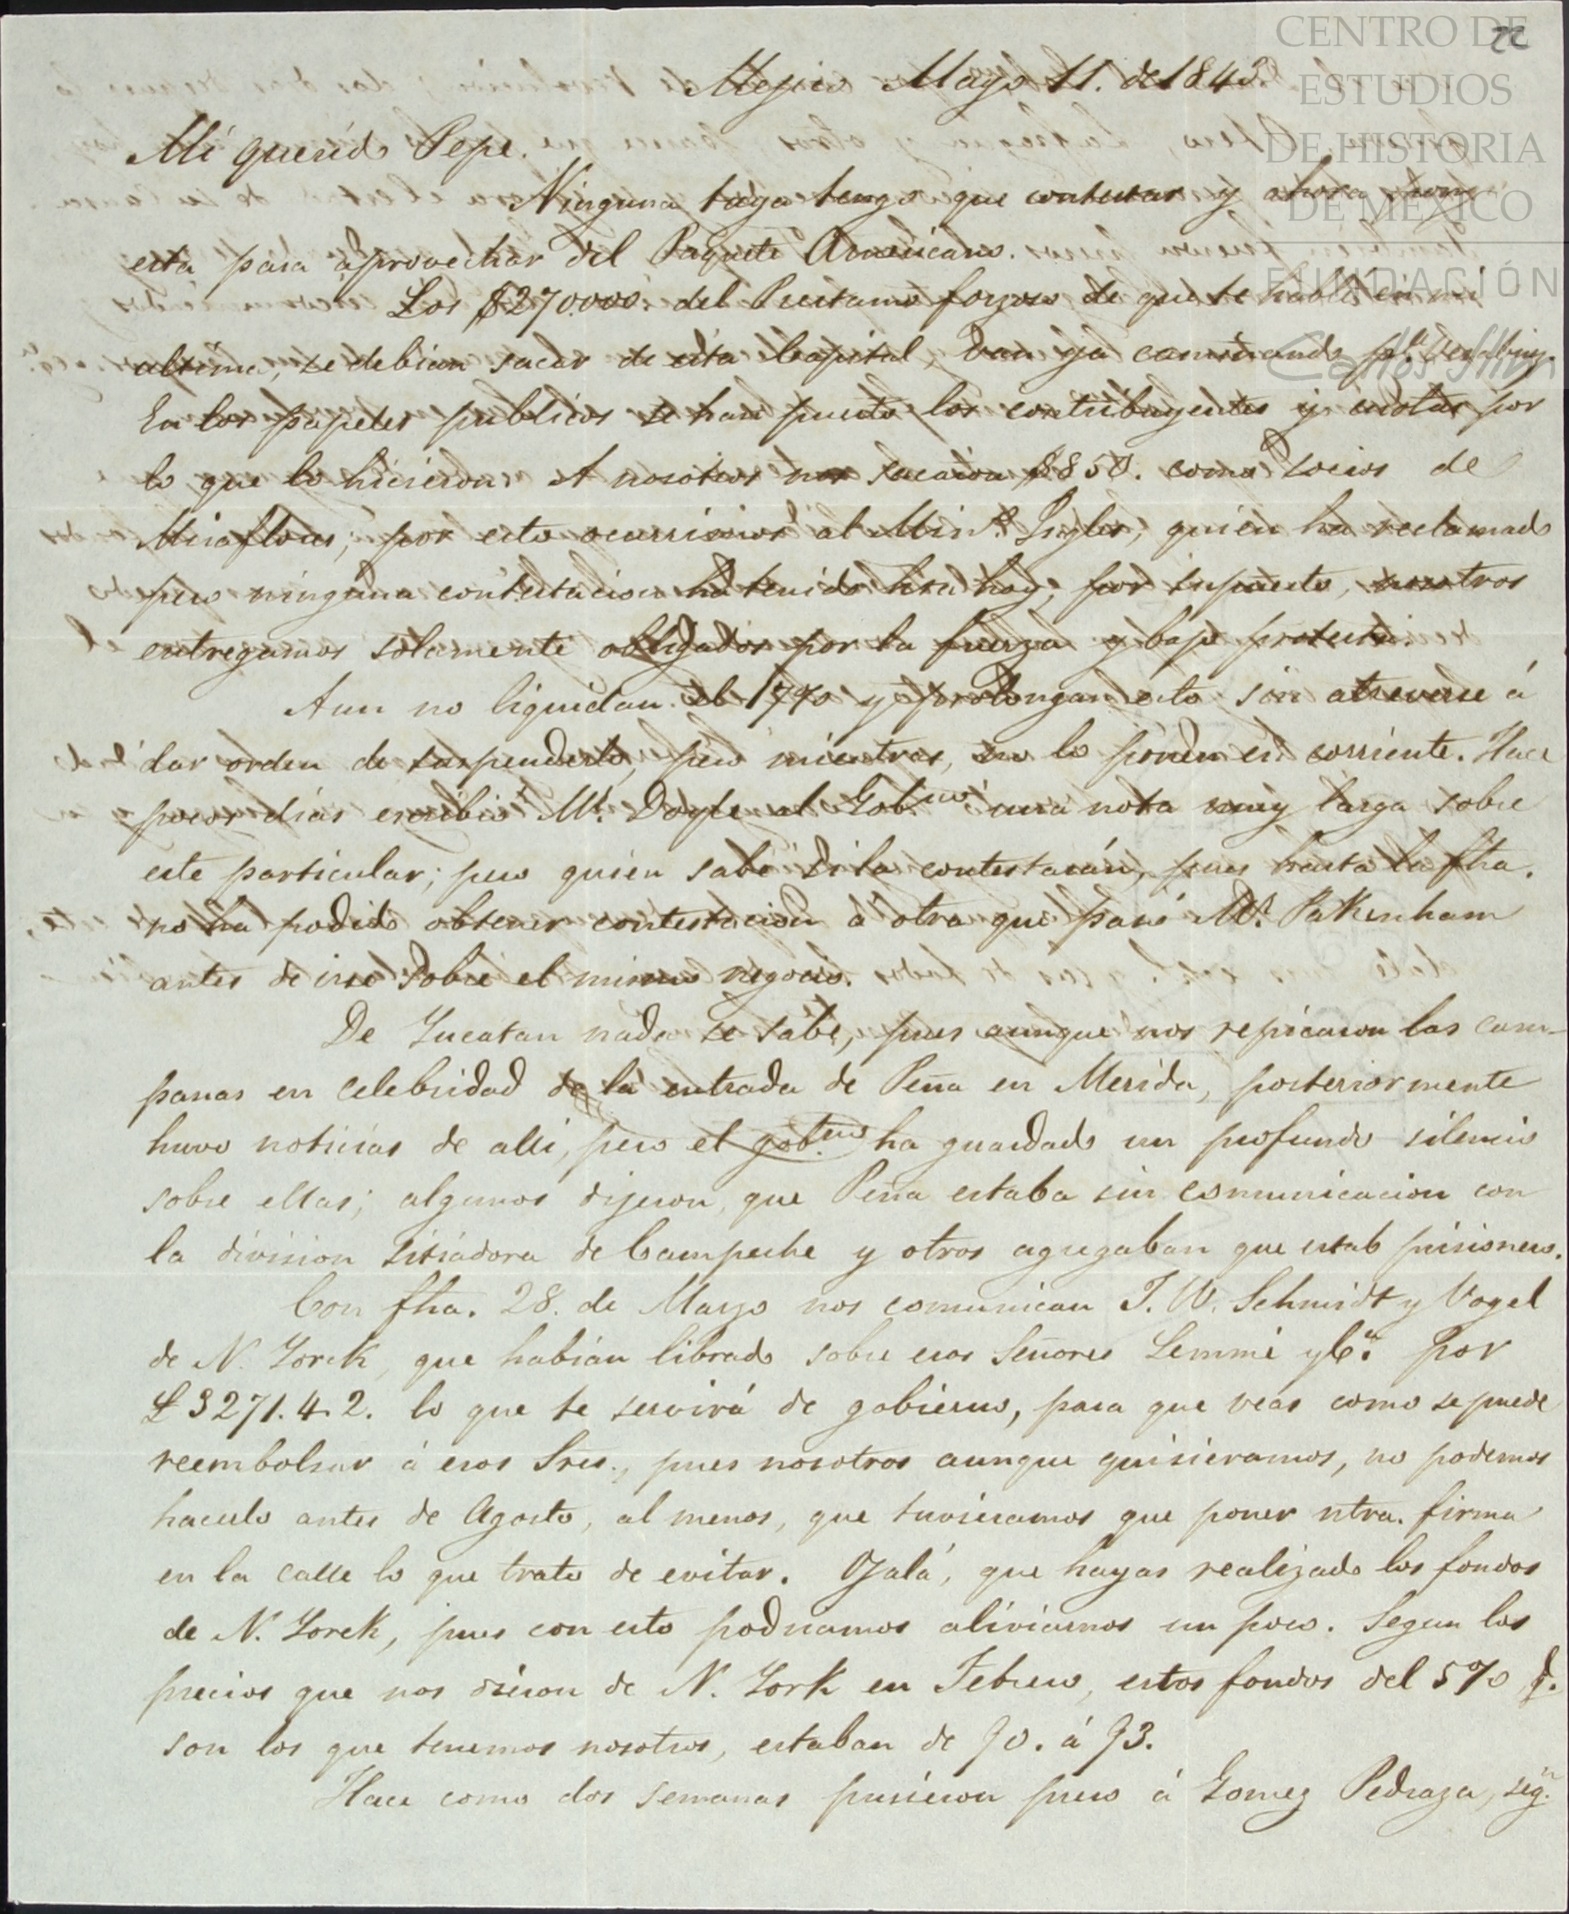 CENTRO DE
ESTUDIOS
DE HISTORIA
DE MÉXICO
FUNDACIÓN
Carlos Slim
22
Mejico Mayo 11. de 1843.
Mi querido Pepe.
Ninguna tuya tengo que contestar y ahora pongo
esta para aprovechar del Paquete Americano.
Los $270.000. del Prestamo forzoso de que te hablé en mi
ultima, se debian sacar de esta Capital, van ya caminando pa.
En los papeles publicos se han puesto los contribuyentes y cuotas por
lo que lo hicieron. A nosotros nos sacaron $850. como socios de
Miraflores; por esto ocurrimos al Minro. Ingles, quien ha reclamado
pero ninguna contestacion ha tenido hta. hoy; por supuesto, nosotros
entregamos solamente obligados por la fuerza y bajo protesta.
Aun no liquidan el 17%o y prolongan esto sin atreverse á
dar orden de suspenderlo, pero mientras, no lo ponen en corriente. Hace
pocos dias escribió Mr. Doyle al Gobierno una nota muy larga sobre
este particular; pero quien sabe si la contestarán, pues hasta la fha.
no ha podido obtener contestacion á otra que pasó Mr. Pakenham
antes de irse sobre el mismo negocio.
De Yucatan nada se sabe, pues aunque nos repicaron las cam-
panas en celebridad de la entrada de Peña en Merida, posteriormente
huvo noticias de alli, pero el gobierno ha guardado un profundo silencio
sobre ellas; algunos dijeron, que Peña estaba sin comunicacion con
la division sitiadora de Campeche y otros agregaban que estab prisionero.
Con fha. 28. de Marzo nos comunican J. W. Schmidt y Vogel
de N. Yorck, que habian librado sobre esos Señores Lemmé y Ca. por
£ 3271. 4. 2. lo que te servirá de gobierno, para que veas como se puede
reembolsar á esos Sres., pues nosotros aunque quisieramos, no podemos
hacerlo antes de Agosto, al menos, que tuvieramos que poner ntra. firma
en la calle lo que trato de evitar. Ojalá, que hayas realizado los fondos
de N. Yorck, pues con esto podriamos aliviarnos un poco. Segun los
precios que nos dieron de N. York en Febrero, estos fondos del 5%o q.
son los que tenemos nosotros, estaban de 90. á 93.
Hace como dos semanas pusieron preso á Gomez Pedraza, segn.